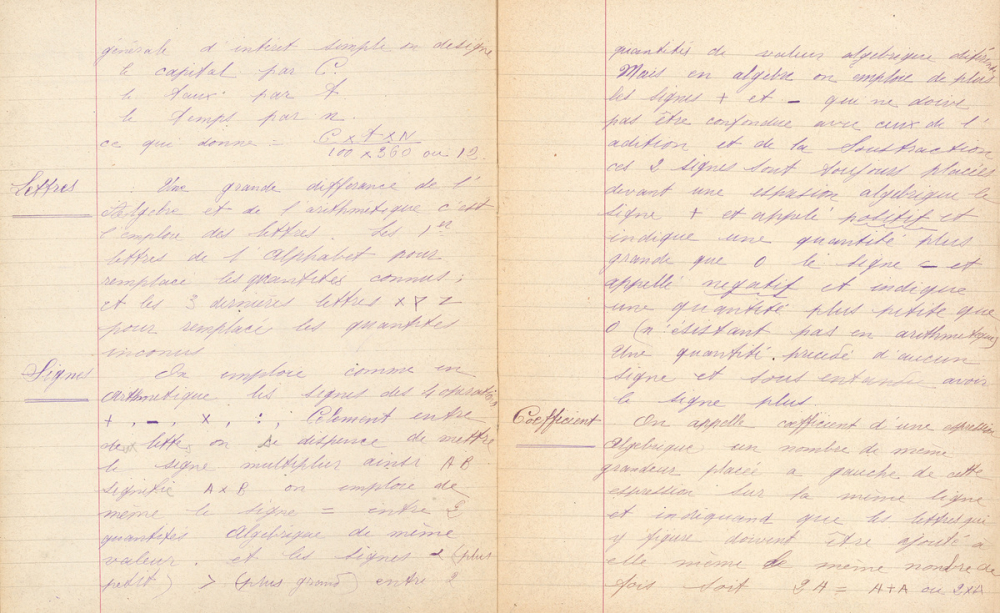 générale d'intêret simple on designe
le capital par C.
le taux par t
le temps par n.
ce qui donne = C x t x N / 100 x 360 ou 12.
Lettres
Une grande différance de l'
Algèbre et de l'arithmetique c'est
l'emploie des lettres. Les 1ères
lettres de l'alphabet pour
remplace les quantités connus;
et les 3 dernières lettres x y z
pour remplace les quantites
inconus
Signes
On emploie comme en
arthmetique les signes des 4 operations
+, -, x, : ; entre
lettres on se dispence de mettre
le signe multiplier ainsi AB
signifie A x B on emploie de
même le signe = entre 2
quantités algebrique de même
valeur. et les signes < (plus
petit) > (plus grand) entre 2
quantités de valeur algebrique différente
Mais en algèbre on emploie de plus
les signes + et - que ne doivs
pas être confondue avec ceux de l'
adition et de la Soustraction
ces 2 signes sont toujours placées
devant une expasion algebrique le
signe + et appelé positif et
indique une quantité plus
grande que 0 le signe - et
appellé negatif et indique
une quantité plus petite que
0 (n'éxistant pas en arithmetique)
Une quantité précédé d'aucun
signe et sous entandu avoir
le signe plus.
Coefficient
On appelle cœfficient d'une
Algebrique un nombre de même
grandeur placée a gauche de cette
expression sur la même ligne
et indiquand que les lettres qui
y figure doivent être ajouté à
elle même le même nombre de
fois soit 2A = A+A ou 2xA